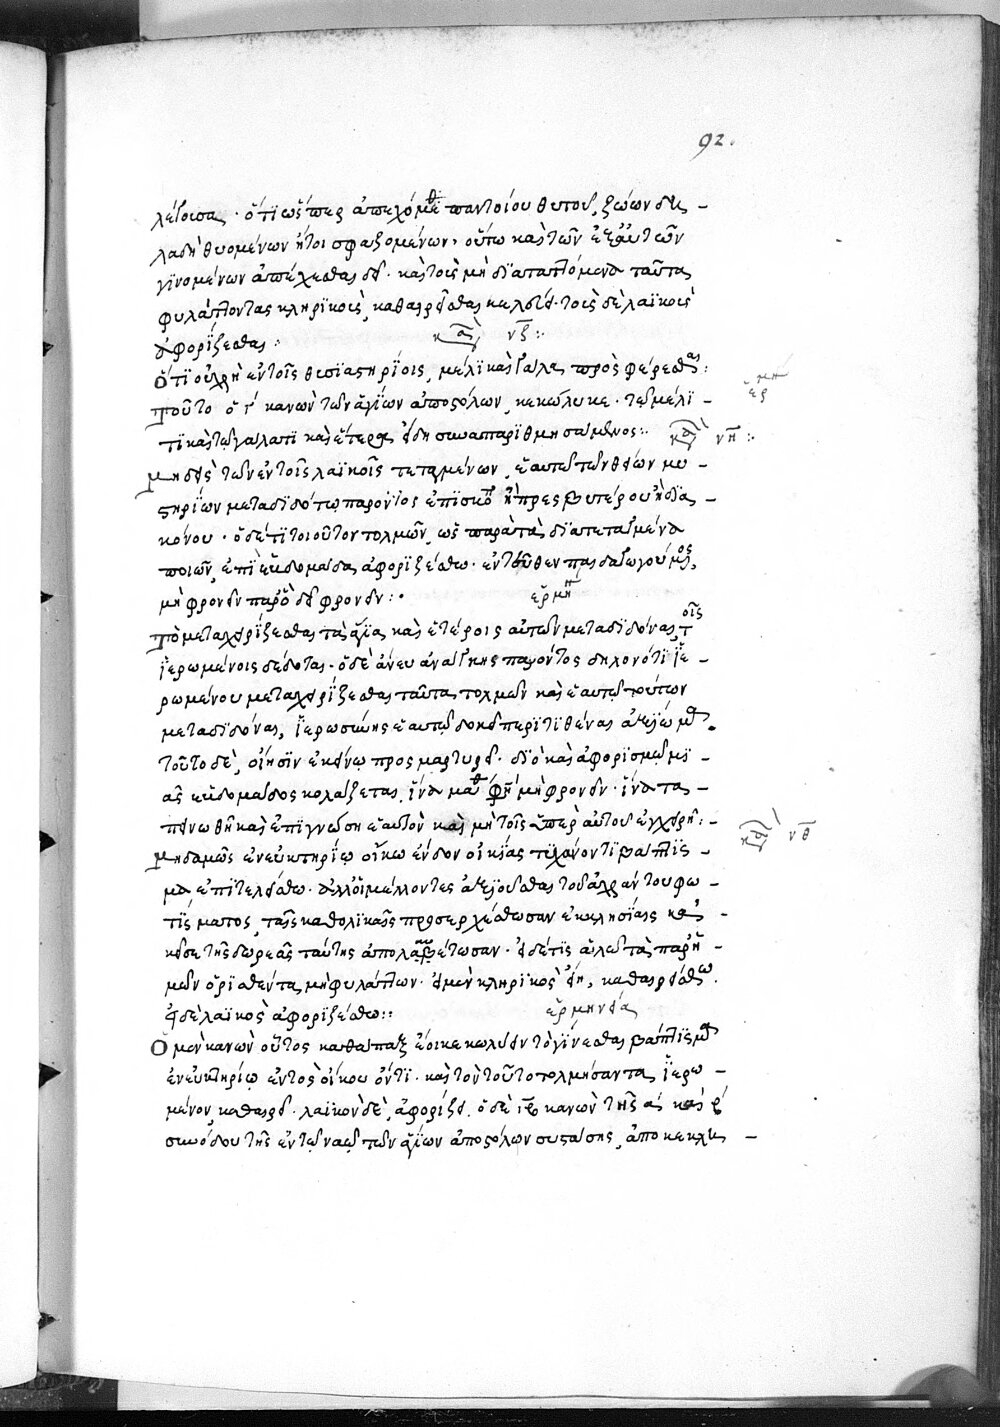 92.
λέγουσα · ὅτι ὥσπερ ἀπεχόμεθα παντοίου θυτοῦ, ζώων δη-
λαδὴ θυομένων ἤτοι σφαζομένων, οὕτω καὶ τῶν ἐξ αὐτῶν
γινομένων ἀπέχεσθαι δεῖ · καὶ τοὺς μὴ διαταττόμενα ταῦτα
φυλάττοντας κληρικοὺς, καθαιρεῖσθαι κελεύει · τοὺς δὲ λαϊκοὺς
ἀφορίζεσθαι :
κανὼν νζ :
Ὅτι οὐ χρὴ ἐν τοῖς θυσιαστηρίοις, μέλι καὶ γάλα προσφέρεσθαι :
ἑρμη
Τοῦτο ὁ γ κανὼν τῶν ἁγίων ἀποστόλων, κεκώλυκε · τῷ μέλι-
τι καὶ τῷ γάλατι καὶ ἕτερα εἴδη συναπαριθμησάμενος :
κανὼν νη :
Μηδεὶς τῶν ἐν τοῖς λαϊκοῖς τεταγμένων, ἑαυτῷ τῶν θείων μυ-
στηρίων μεταδιδότω παρόντος ἐπισκόπου ἢ πρεσβυτέρου ἢ δια-
κόνου · ὁ δέ τι τοιοῦτον τολμῶν, ὡς παρὰ τὰ διατεταγμένα
ποιῶν, ἐπὶ ἑβδομάδα ἀφοριζέσθω · ἐντεῦθεν παιδαγωγούμενος,
μὴ φρονεῖν παρ' ὃ δεῖ φρονεῖν :
ἑρμη
Τὸ μεταχειρίζεσθαι τὰ ἅγια, καὶ ἑτέροις αὐτῶν μεταδιδόναι, τοῖς
ἱερωμένοις δέδοται · ὁ δὲ ἄνευ ἀνάγκης παρόντος δηλονότι ἱε-
ρωμένου μεταχειρίζεσθαι ταῦτα τολμῶν καὶ ἑαυτῷ τούτων
μεταδιδόναι, ἱερωσύνης ἑαυτῷ δοκεῖ περιτιθέναι ἀξίωμα.
τοῦτο δὲ, οἴησιν ἐκείνῳ προσμαρτυρεῖ · διὸ καὶ ἀφορισμῷ μι-
ᾶς ἑβδομάδος κολάζεται, ἵνα μάθῃ φησὶ μὴ φρονεῖν · ἵνα τα-
πεινωθῇ καὶ ἐπιγνώσῃ ἑαυτὸν καὶ μὴ τοῖς ὑπὲρ αὐτοῦ ἐγχειρῇ :
κανὼν νθ
Μηδαμῶς ἐν εὐκτηρίῳ οἴκῳ ἔνδον οἰκίας τυγχάνοντι βάπτισ-
μα ἐπιτελείσθω · ἀλλ' οἱ μέλλοντες ἀξιοῦσθαι τοῦ ἀχράντου φω-
τίσματος, ταῖς καθολικαῖς προσερχέσθωσαν ἐκκλησίαις κα-
κεῖσε τῆς δωρεᾶς ταύτης ἀπολαβέτωσαν · εἰ δέ τις ἁλῷ τὰ παρ' ἡ-
μῶν ὁρισθέντα, μὴ φυλάττων · εἰ μὲν κληρικὸς εἴη, καθαιρείσθω.
εἰ δὲ λαϊκὸς ἀφοριζέσθω :
ἑρμηνεία
Ὁ μὲν κανὼν οὗτος καθάπαξ ἔοικε κωλύειν τὸ γίνεσθαι βάπτισμα
ἐν εὐκτηρίῳ ἐντὸς οἴκου ὄντι · καὶ τὸν τοῦτο τολμήσαντα, ἱερω-
μένον, καθαιρεῖ · λαϊκὸν δὲ, ἀφορίζει. ὁ δὲ ιβ κανὼν τῆς α καὶ β
συνόδου τῆς ἐν τῷ ναῷ τῶν ἁγίων ἀποστόλων συστάσης, ἀποκεκλη-